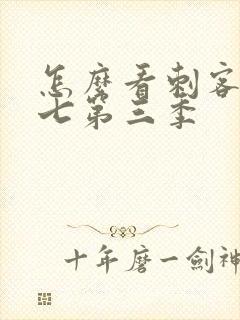 怎麼看刺客
七第三季
十年磨一劍神